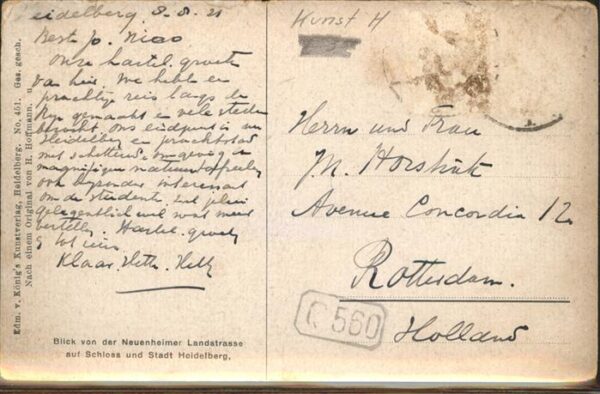 Heidelberg 8.8.21
Onze hartel. groeten
van hier. We hebben een
prachtige reis langs de
Rijn gemaakt en vele steden
bezocht. Ons eindpunt is nu
Heidelberg een prachtstad
met schitterende omgeving
magnifique natuurtafereelen
ook bijzonder interessant
om de studenten.
gelegentlich wel wat meer
vertellen. Hartel. groeten
tot ziens
Klaar. Hetty
Edm. v. König's Kunstverlag, Heidelberg. No. 451. Ges. gesch.
Nach einem Original von H. Hoffmann.
Blick von der Neuenheimer Landstrasse
auf Schloss und Stadt Heidelberg.
Kunst H
Herrn und Frau
Avenue Concordia 12
Rotterdam.
Holland
560